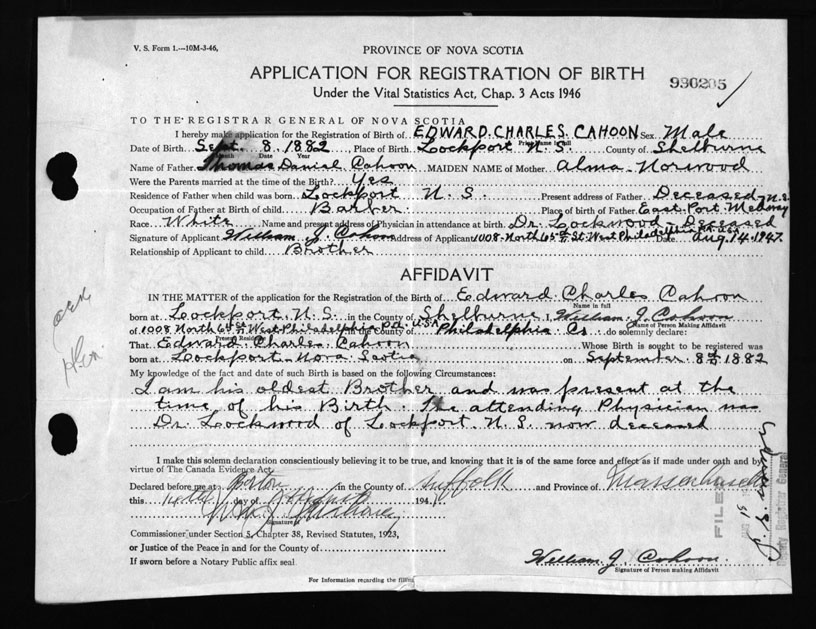 V. S. Form 1.—10M-3-46,
PROVINCE OF NOVA SCOTIA
APPLICATION FOR REGISTRATION OF BIRTH
930205
Under the Vital Statistics Act, Chap. 3 Acts 1946
TO THE REGISTRAR GENERAL OF NOVA SCOTIA
I hereby make application for the Registration of Birth of EDWARD CHARLES CAHOON Sex Male
Print Name in full
Date of Birth Sept. 8. 1882 Place of Birth Lockport N. S. County of Shelburne
Month Date Year
Name of Father Thomas Daniel Cahoon MAIDEN NAME of Mother Alma Norwood
Were the Parents married at the time of the Birth? Yes
Residence of Father when child was born Lockport N. S. Present address of Father Deceased N.S.
Occupation of Father at Birth of child Barber Place of birth of Father East Port Medway
Race White Name and present address of Physician in attendance at birth Dr. Lockwood Deceased
Signature of Applicant William J. Cahoon Address of Applicant 1008-North 65th St. West Philadelphia Date Aug. 14. 1947.
Relationship of Applicant to child Brother
AFFIDAVIT
IN THE MATTER of the application for the Registration of the Birth of Edward Charles Cahoon
Name in full
born at Lockport, N. S. in the County of Shelburne, William J. Cahoon
Name of Person Making Affidavit
of 1008 North West Philadelphia Pa. U.S.A in the County of Philadelphia Co. do solemnly declare:
That Edward Charles Cahoon Whose Birth is sought to be registered was
born at Lockport Nova Scotia on September. 8th 1882
My knowledge of the fact and date of such Birth is based on the following Circumstances:
I am his oldest Brother and was present at the
time of his Birth. The attending Physician was
Dr. Lockwood of Lockport. N. S. now deceased
I make this solemn declaration conscientiously believing it to be true, and knowing that it is of the same force and effect as if made under oath and by
virtue of The Canada Evidence Act.
Declared before me at Boston in the County of Suffolk and Province of Massachusetts
this 14th day of August 194
Signature
Commissioner under Section 5, Chapter 38, Revised Statutes, 1923,
or Justice of the Peace in and for the County of
If sworn before a Notary Public affix seal
William J. Cahoon.
Signature of Person making Affidavit
For Information regarding the filing
FILED
Deputy Registrar General